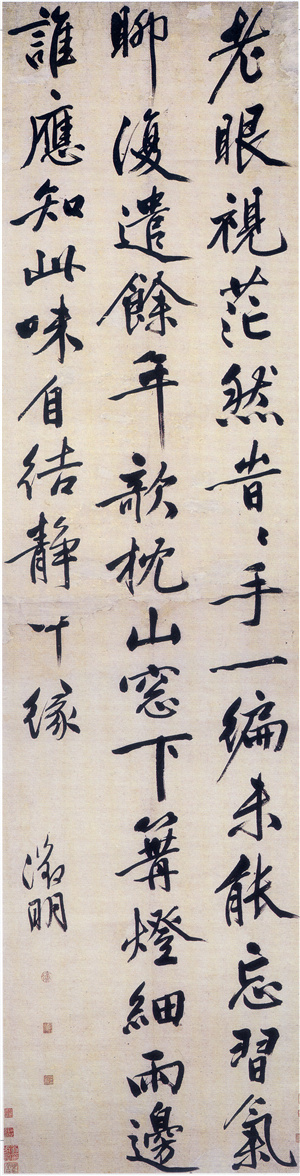 老眼視茫然旹〻手一編未能忘習氣
聊復遣餘年欹枕山窓下篝燈細雨邊
誰應知此味自結静中緣
徵明